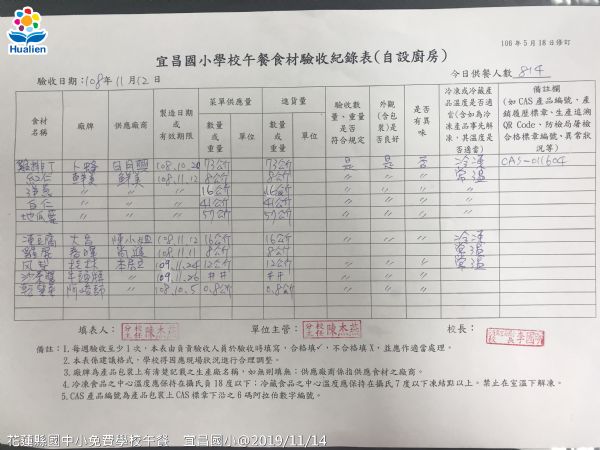 Hualien
106 年 5 月 18 日修訂
宜昌國小學校午餐食材驗收紀錄表(自設廚房)
驗收日期：108年11月12日
今日供餐人數 814
食材名稱 廠牌 供應廠商 製造日期或有效期限 菜單供應量 數量或重量 單位 進貨量 數量或重量 單位 驗收數量、重量是否符合規定 外觀(含包裝)是否良好 是否有異味 冷凍或冷藏產品溫度是否適當(含如為冷凍產品事先解凍，其溫度是否適當) 備註欄(如 CAS 產品編號，產銷履歷標章、生產追溯QR Code、防檢局屠檢合格標章編號、異常狀況等)
雞排丁 卜蜂 108.10.20 73公斤 73公斤 是 是 否 冷凍 CAS-011604
鮮美 鮮美 108.11.12 8公斤 8公斤 〃 〃 〃 常溫
洋蔥 〃 〃 〃 16公斤 16公斤 〃 〃 〃 〃
〃 〃 〃 41公斤 41公斤 〃 〃 〃 〃
地瓜葉 〃 〃 〃 57公斤 57公斤 〃 〃 〃 〃
凍豆腐 大呂 陳小姐 108.11.12 16公斤 16公斤 〃 〃 〃 冷凍
108.11.1 8公斤 8公斤 〃 〃 〃 常溫
109.11.24 12公斤 12公斤 〃 〃 〃 常溫
沙茶醬 牛頭牌 〃 109.11.26 〃 〃
阿嬌師 〃 108.10.5 0.8公斤 0.8公斤
填表人： 單位主管： 校長：
備註：1.每週驗收至少 1 次，本表由負責驗收人員於驗收時填寫，合格填✓，不合格填 X，並應作適當處理。
2.本表係建議格式，學校得因應現場狀況進行合理調整。
3.廠牌為產品包裝上有清楚記載之生產廠名稱，如無則填無；供應廠商係指供應食材之廠商。
4.冷凍食品之中心溫度應保持在攝氏負 18 度以下；冷藏食品之中心溫度應保持在攝氏 7 度以下凍結點以上。禁止在室溫下解凍。
5.CAS 產品編號為產品包裝上 CAS 標章下沿之 6 碼阿拉伯數字編號。
花蓮縣國中小免費學校午餐 宜昌國小@2019/11/14